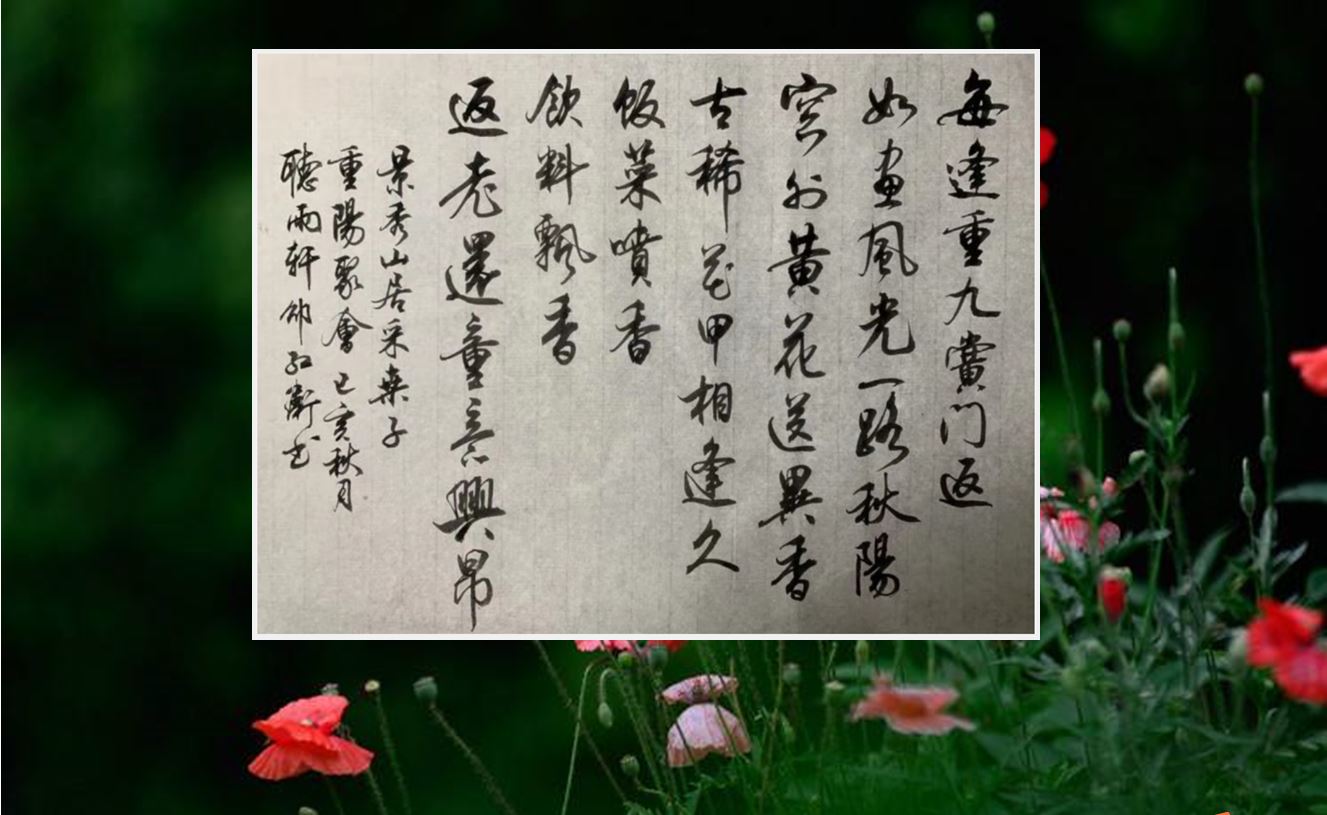 每逢重九黌门返
如畫風光一路秋陽
窗外黃花送異香
古稀花甲相逢久
飯菜噴香
飲料飄香
返老還童意興昂
景秀山居采桑子
重陽聚會 己亥秋月
聽雨軒紅衛书